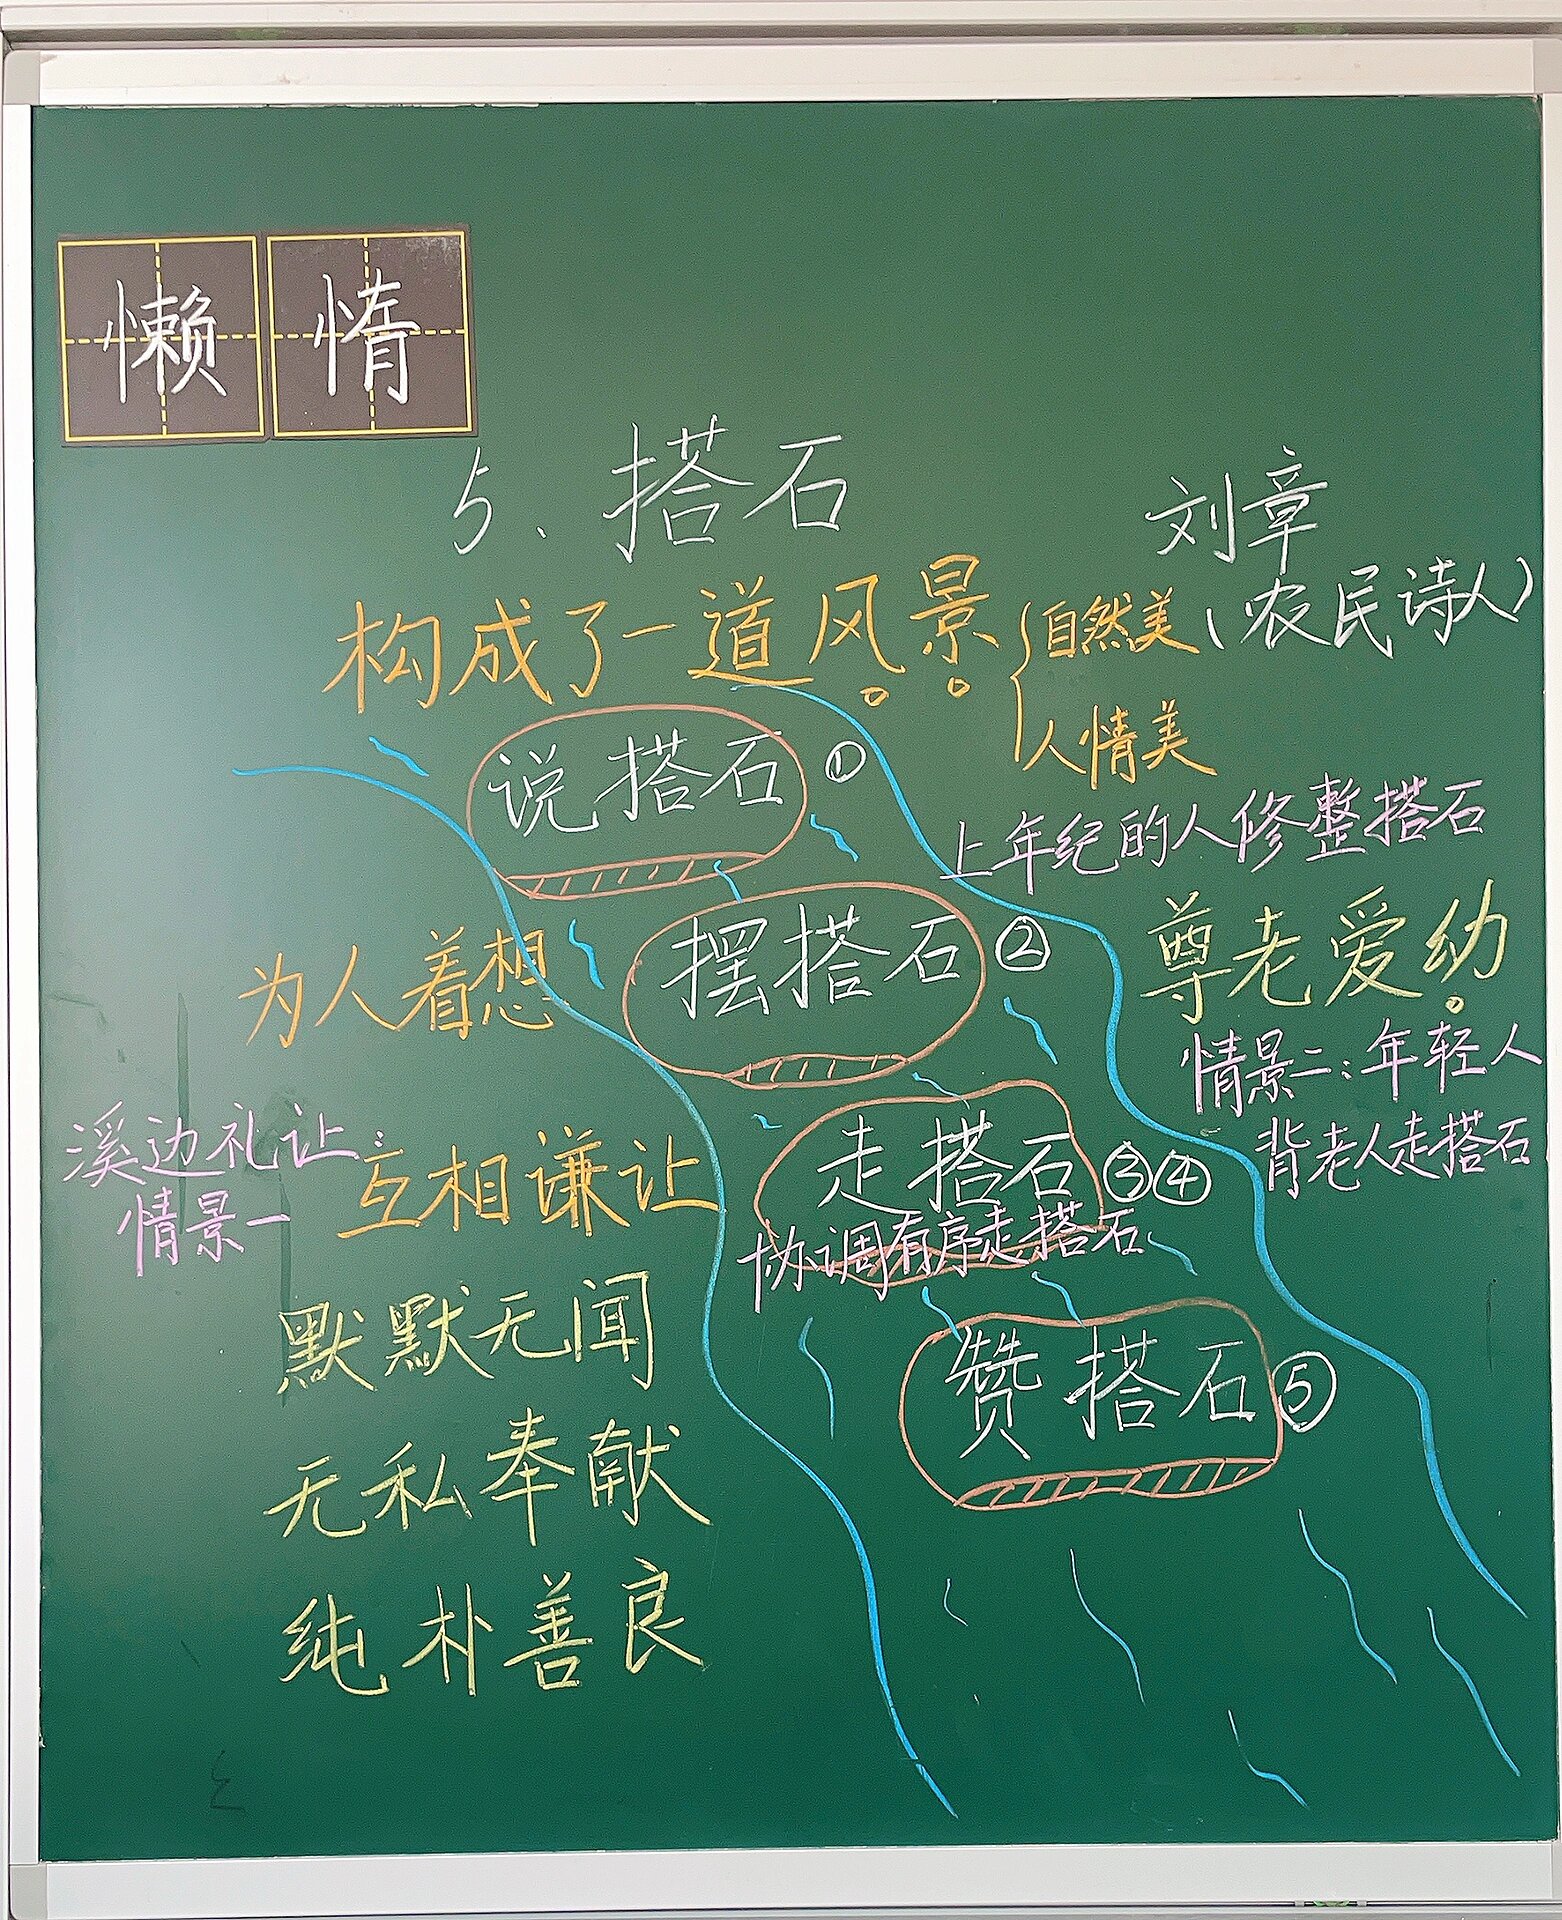 懒惰
5、搭石
刘章
（农民诗人）
构成了一道风景
自然美
人情美
说搭石①
上年纪的人修整搭石
摆搭石②
为人着想
尊老爱幼
情景二：年轻人
背老人走搭石
走搭石③④
协调有序走搭石
溪边礼让：
情景一
互相谦让
默默无闻
赞搭石⑤
无私奉献
纯朴善良